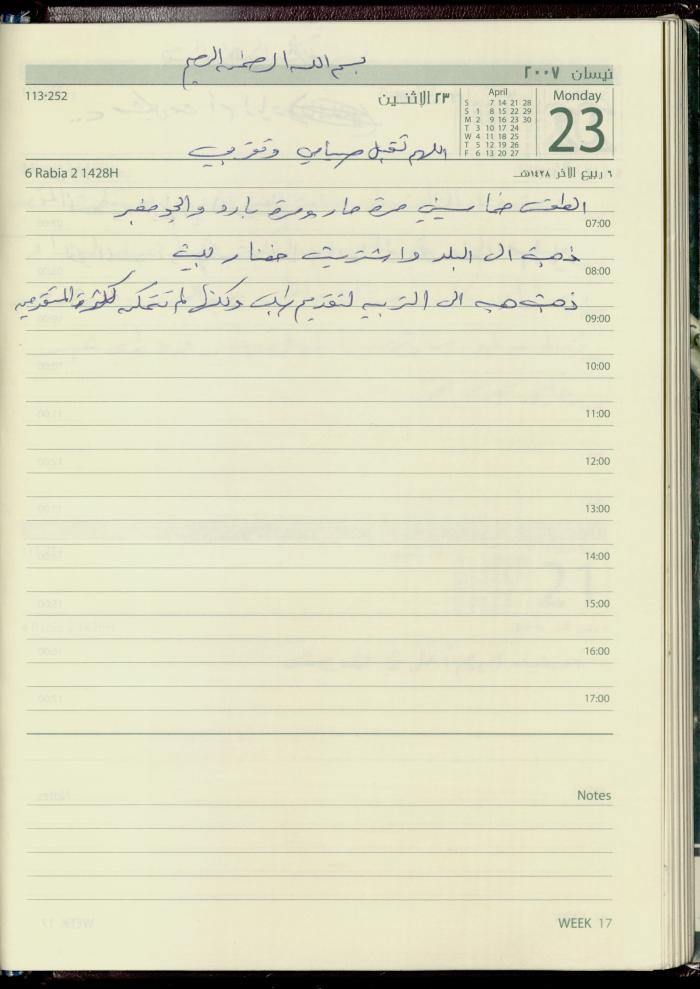 بسم الله الرحمن الرحيم
نيسان ٢٠٠٧
113-252
٢٣ الاثنين
April
S 7 14 21 28
S 1 8 15 22 29
M 2 9 16 23 30
T 3 10 17 24
W 4 11 18 25
T 5 12 19 26
F 6 13 20 27
Monday
23
اللهم تقبل صيامي وتقربي
6 Rabia 2 1428H
٦ ربيع الآخر ١٤٢٨هـ
الطقس خماسيني مرة حار ومرة بارد والجو مغبر
07:00
ذهبت الى البلد واشتريت خضار للبيت
08:00
ذهبت هبه الى التربيه لتقديم طلب ولكنها لم تتمكن لكثرة المتقدمين
09:00
10:00
11:00
12:00
13:00
14:00
15:00
16:00
17:00
Notes
WEEK 17